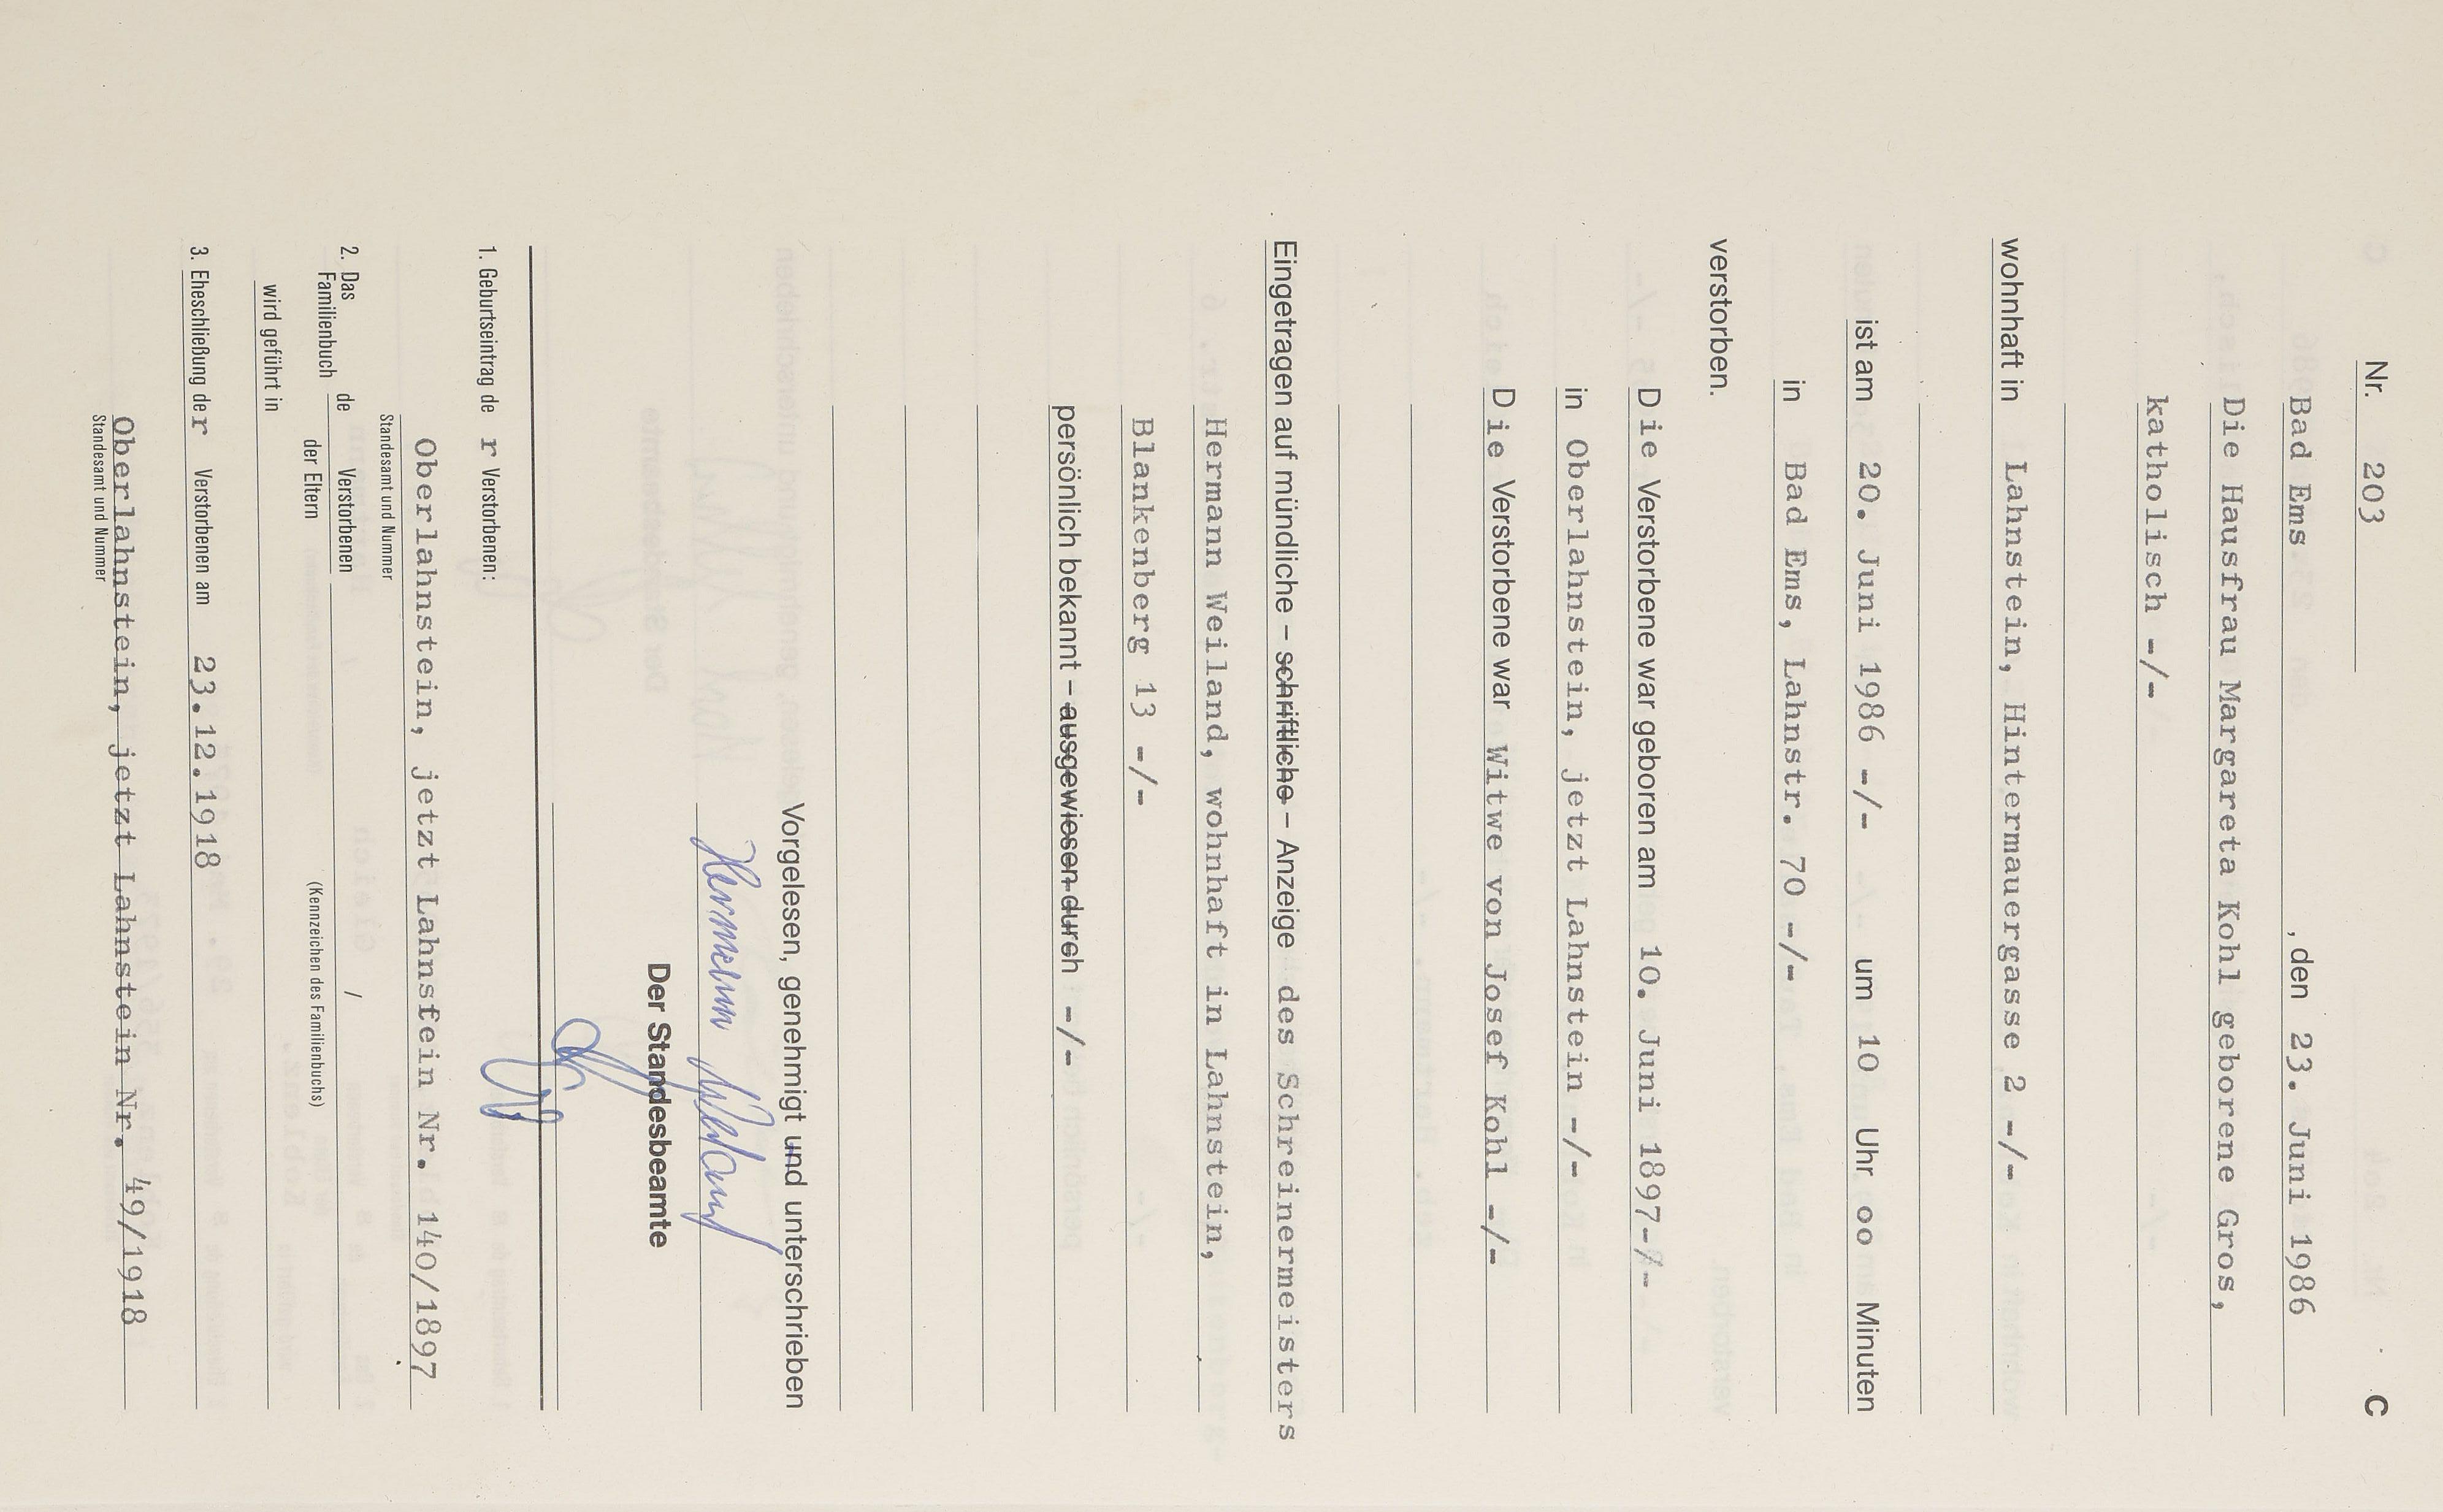 Nr. 203 C
Bad Ems , den 23. Juni 1986
Die Hausfrau Margareta Kohl geborene Gros,
katholisch -/-
wohnhaft in Lahnstein, Hintermauergasse 2 -/-
ist am 20. Juni 1986 -/- um 10 Uhr oo Minuten
in Bad Ems, Lahnstr. 70 -/-
verstorben.
Die Verstorbene war geboren am 10. Juni 1897-/-
in Oberlahnstein, jetzt Lahnstein -/-
Die Verstorbene war Witwe von Josef Kohl -/-
Eingetragen auf mündliche – schriftliche – Anzeige des Schreinermeisters
Hermann Weiland, wohnhaft in Lahnstein,
Blankenberg 13 -/-
persönlich bekannt – ausgewiesen durch -/-
Vorgelesen, genehmigt und unterschrieben
Hermann Weiland
Der Standesbeamte
1. Geburtseintrag de r Verstorbenen:
Oberlahnstein, jetzt Lahnstein Nr. 140/1897
Standesamt und Nummer
2. Das Familienbuch de Verstorbenen /
der Eltern (Kennzeichen des Familienbuchs)
wird geführt in
3. Eheschließung der Verstorbenen am 23.12.1918
Oberlahnstein, jetzt Lahnstein Nr. 49/1918
Standesamt und Nummer